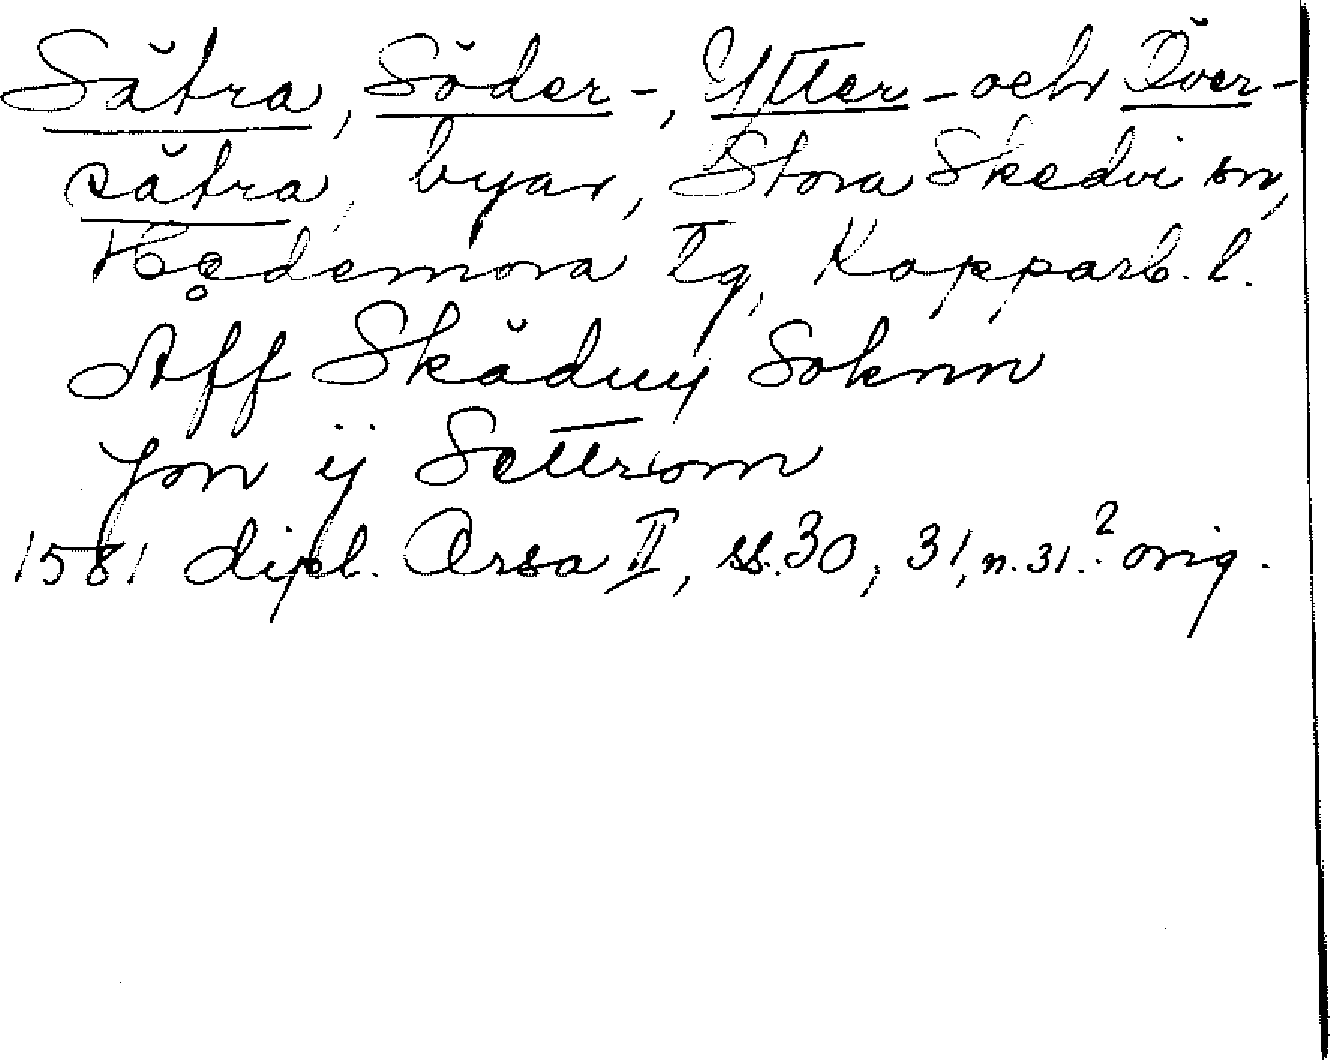 Sätra, Söder-, Ytter- och Över-
sätra, byar, Stora Skedvi sn,
Hedemora tg, Kopparb. l.
Aff Skäduij Soknn
Jon ij Settrom
1581 dipl. Orsa II, ss. 30, 31, n. 31.² orig.